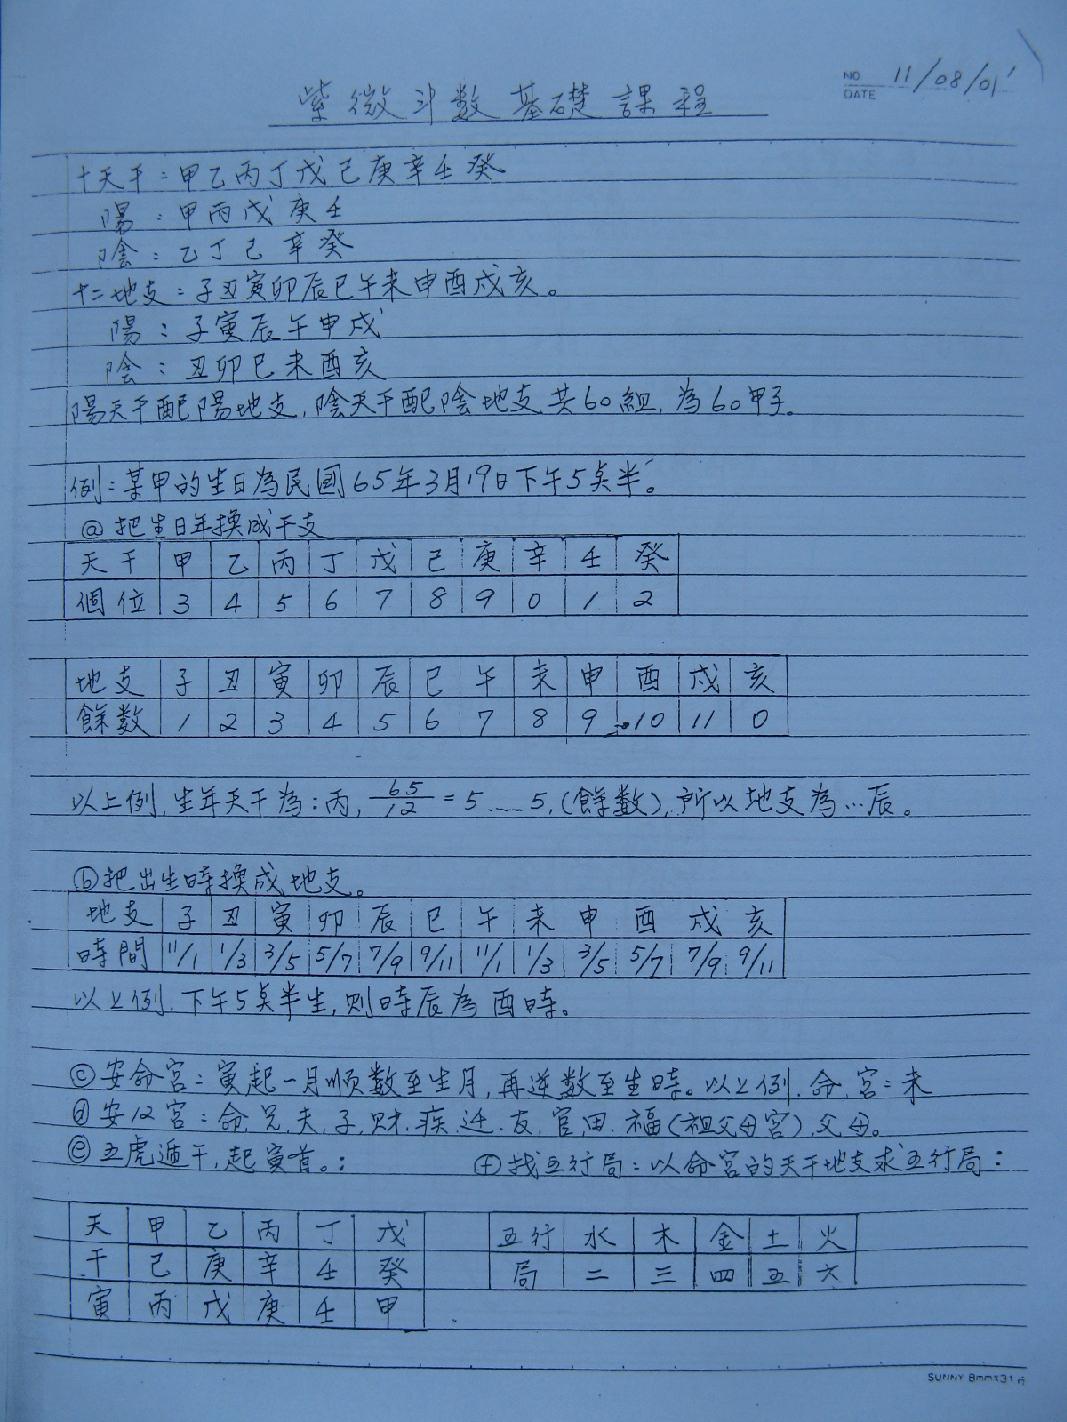 NO
DATE 11/08/01'
紫微斗数基礎課程
十天干：甲乙丙丁戊己庚辛壬癸
陽：甲丙戊庚壬
陰：乙丁己辛癸
十二地支：子丑寅卯辰巳午未申酉戌亥。
陽：子寅辰午申戌
陰：丑卯巳未酉亥
陽天干配陽地支,陰天干配陰地支共60組,為60甲子.
例：某甲的生日為民國65年3月19日下午5点半。
ⓐ把生日年換成干支
天干 甲 乙 丙 丁 戊 己 庚 辛 壬 癸
個位 3 4 5 6 7 8 9 0 1 2
地支 子 丑 寅 卯 辰 巳 午 未 申 酉 戌 亥
餘數 1 2 3 4 5 6 7 8 9 10 11 0
以上例,生年天干為：丙, 65/12 = 5 .... 5,(餘數),所以地支為…辰。
ⓑ把出生時換成地支。
地支 子 丑 寅 卯 辰 巳 午 未 申 酉 戌 亥
時間 11/1 1/3 3/5 5/7 7/9 9/11 11/1 1/3 3/5 5/7 7/9 9/11
以上例.下午5点半生,则時辰為酉時。
ⓒ安命宮：寅起一月順数至生月,再逆数至生時。以上例.命.宮：未
ⓓ安12宮：命.兄.夫.子.财.疾.迁.友.官.田.福(祖父母宮).父母。
ⓔ五虎遁干,起寅首。：
ⓕ找五行局：以命宮的天干地支求五行局：
天 甲 乙 丙 丁 戊
干 己 庚 辛 壬 癸
寅 丙 戊 庚 壬 甲
五行 水 木 金 土 火
局 二 三 四 五 六
SUNNY 8mm×31行